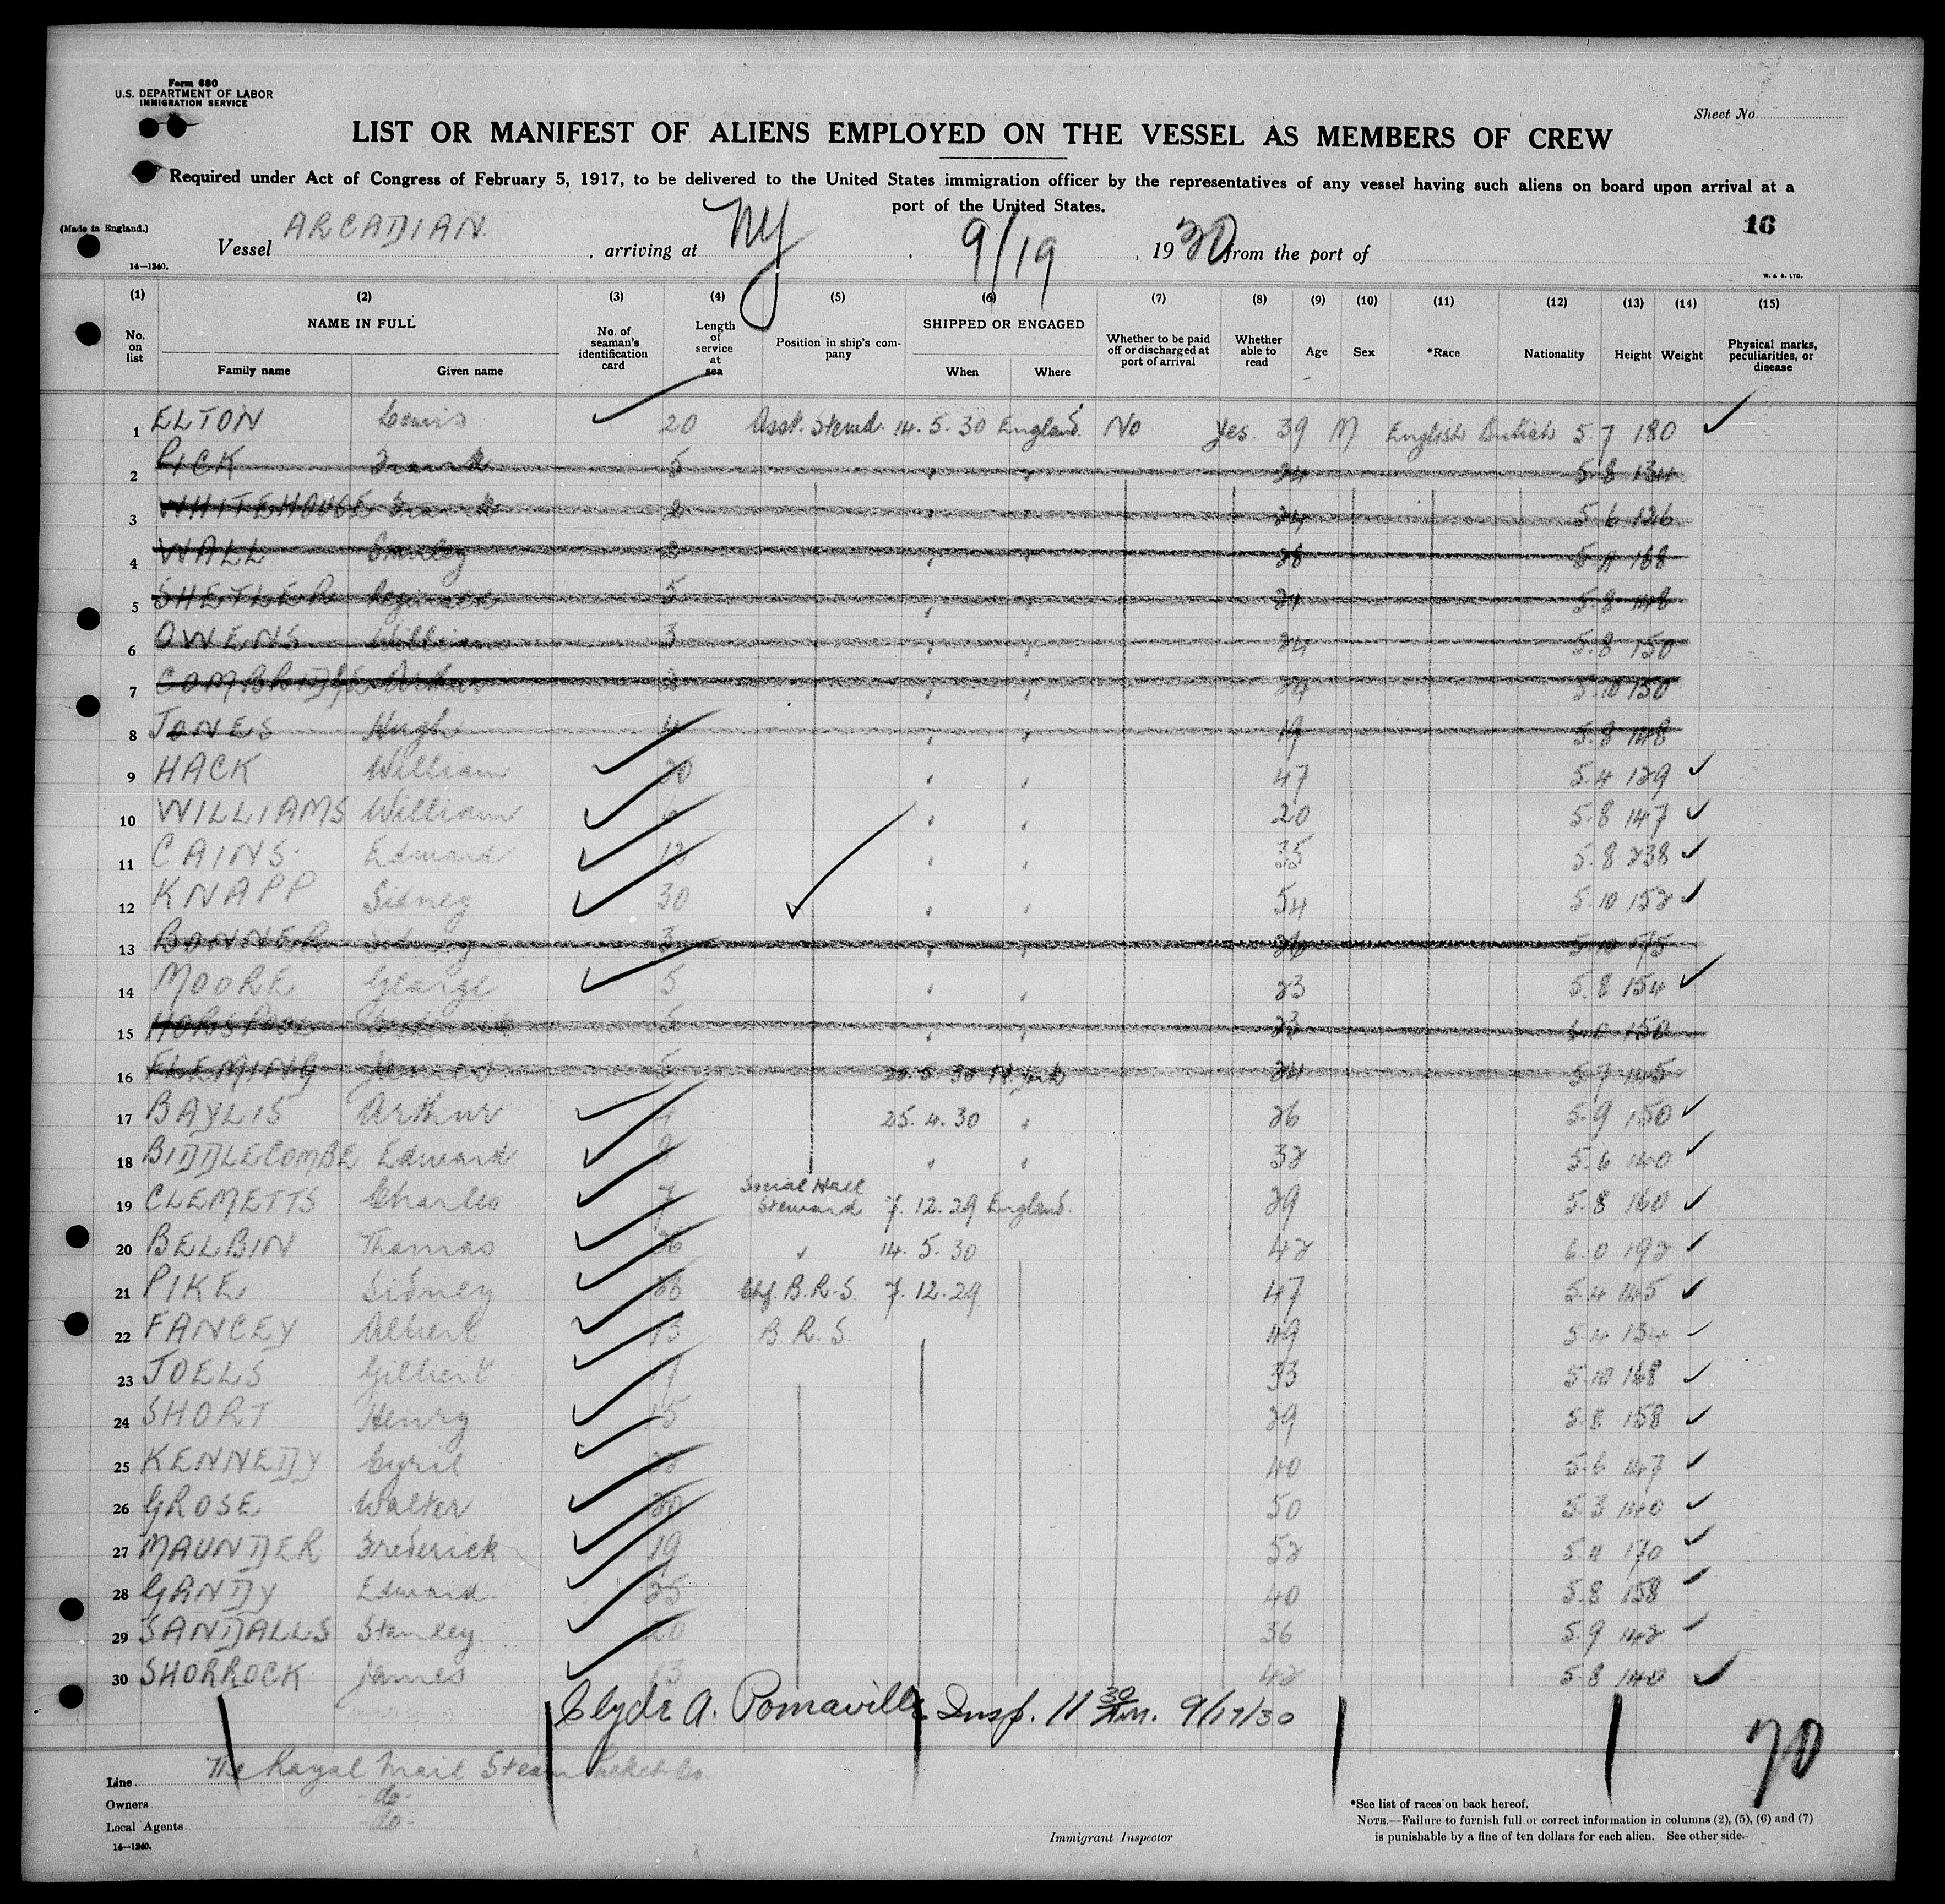 Form 680
U.S. DEPARTMENT OF LABOR
IMMIGRATION SERVICE
Sheet No
LIST OR MANIFEST OF ALIENS EMPLOYED ON THE VESSEL AS MEMBERS OF CREW
Required under Act of Congress of February 5, 1917, to be delivered to the United States immigration officer by the representatives of any vessel having such aliens on board upon arrival at a
port of the United States.
(Made in England.)
16
Vessel ARCADIAN , arriving at NY , 9/19 , 1930 from the port of
14—1240.
W. & S. LTD.
(1) (2) (3) (4) (5) (6) (7) (8) (9) (10) (11) (12) (13) (14) (15)
No. on list NAME IN FULL Family name Given name No. of seaman's identification card Length of service at sea Position in ship's company SHIPPED OR ENGAGED When Where Whether to be paid off or discharged at port of arrival Whether able to read Age Sex *Race Nationality Height Weight Physical marks, peculiarities, or disease
1 ELTON Lewis 20 Asst. Stewd. 14. 5. 30 England. No Yes. 39 M English British 5. 7 180
2 PICK Frank 5 " " 24 5. 8 134
3 WHITEHOUSE Frank 2 " " 24 5 6 126
4 WALL " " 28 5 11 168
5 SHETLER Reginald 5 " " 24 5. 8 148
6 OWENS William 3 " " 24 5. 8 150
7 COMBRIDGE Arthur 2 " " 24 5. 10 150
8 JONES Hugh 4 " " 19 5. 8 148
9 HACK William 20 " " 47 5. 4 129
10 WILLIAMS William " " 20 5. 8 147
11 CAINS. Edward 12 " " 35 5. 8 238
12 KNAPP Sidney 30 " " 54 5. 10 152
13 BONNER Sidney 3 " " 26 5. 10 175
14 MOORE George 5 " " 23 5. 8 154
15 HORSPOOL 5 " " 23 6. 0 150
16 FLEMING James 5 30 N. York 24 5 7 145
17 BAYLIS Arthur 25. 4. 30 " 26 5. 9 150
18 BIDDLECOMBE Edward " " 32 5. 6 140
19 CLEMETTS Charles 7 Social Hall Steward 7. 12. 29 England. 29 5. 8 160
20 BELBIN Thomas 26 " 14. 5. 30 42 6. 0 192
21 PIKE Sidney Chf. B.R.S. 7. 12. 29 47 5. 4 145
22 FANCEY Albert 13 B. R. S. 49 5. 4 134
23 JOELS Gilbert 33 5. 10 168
24 SHORT Henry 15 29 5. 8 158
25 KENNEDY Cyril 40 5. 6 147
26 GROSE Walter 30 50 5. 3 140
27 MAUNDER Frederick 19 52 5. 11 170
28 GANDY Edward 25 40 5. 8 158
29 SANDALLS Stanley 20 36 5. 9 142
30 SHORROCK James 13 42 5. 8 140
Clyde A. Pomaville Insp. 11 30 A.M. 9/19/30
70
Line The Royal Mail Steam Packet Co.
Owners -do-
Local Agents -do-
14—1240.
Immigrant Inspector
*See list of races on back hereof.
NOTE.—Failure to furnish full or correct information in columns (2), (5), (6) and (7)
is punishable by a fine of ten dollars for each alien. See other side.